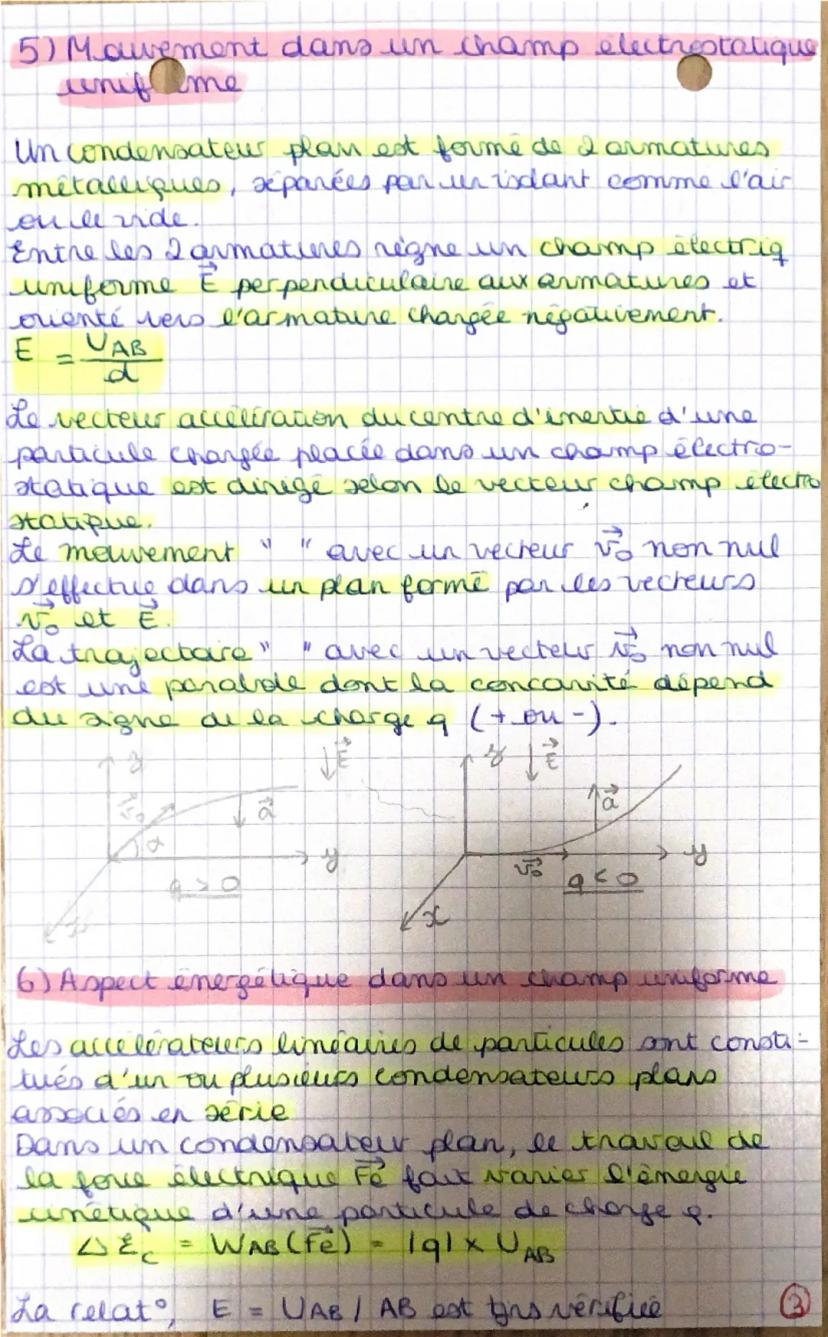 5) Mouvement dans un champ électrostatique
unif me
Un condensateur plan est formé de 2 armatures
métalliques, séparées par un isolant comme l'air
ou le vide.
Entre les 2 armatures règne un champ électriq
uniforme E⃗ perpendiculaire aux armatures et
orienté vers l'armature chargée négativement.
E = UAB / d
Le vecteur accélération du centre d'inertie d'une
particule chargée placée dans un champ électro-
statique est dirigé selon le vecteur champ électro
statique.
Le mouvement " " avec un vecteur v₀⃗ non nul
s'effectue dans un plan formé par les vecteurs
v₀⃗ et E⃗.
La trajectoire " " avec un vecteur v₀⃗ non nul
est une parabole dont la concavité dépend
du signe de la charge q (+ ou -).
z E⃗ v₀⃗ α a⃗ y q > 0 x
z E⃗ a⃗ v₀⃗ y q < 0 x
6) Aspect énergétique dans un champ uniforme
Les accélérateurs linéaires de particules sont consti-
tués d'un ou plusieurs condensateurs plans
associés en série
Dans un condensateur plan, le travail de
la force électrique Fe⃗ fait varier l'énergie
cinétique d'une particule de charge q.
△ Ec = WAB (Fe⃗) = |q| x UAB
La relat°, E = UAB / AB est tjrs vérifiée
3